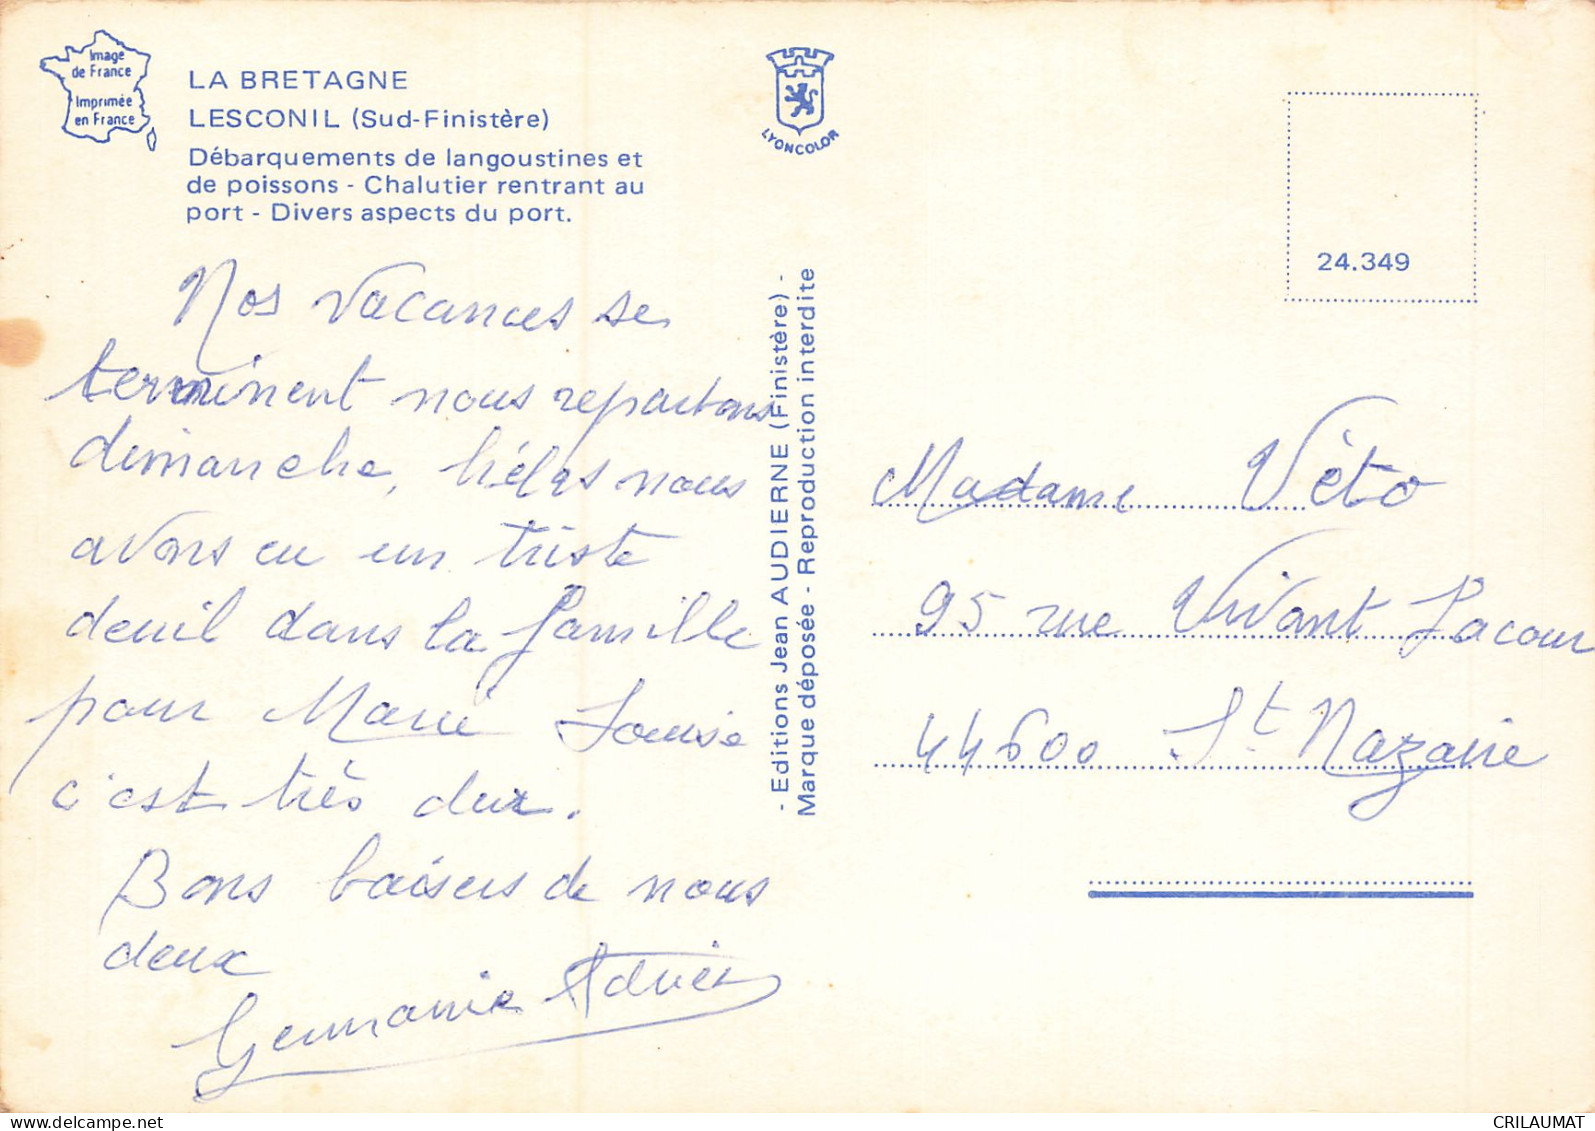 Image
de France
Imprimée
en France
LA BRETAGNE
LESCONIL (Sud-Finistère)
Débarquements de langoustines et
de poissons - Chalutier rentrant au
port - Divers aspects du port.
LYONCOLOR
24.349
Nos vacances se
terminent nous repartons
dimanche, hélas nous
avons eu un triste
deuil dans la famille
pour Marie Louise
c'est très dur.
Bons baisers de nous
deux
Germanie Adrien
- Editions Jean AUDIERNE (Finistère) -
Marque déposée - Reproduction interdite
Madame Véto
95 rue Vivant Lacour
44600 St Nazaire
CRILAUMAT